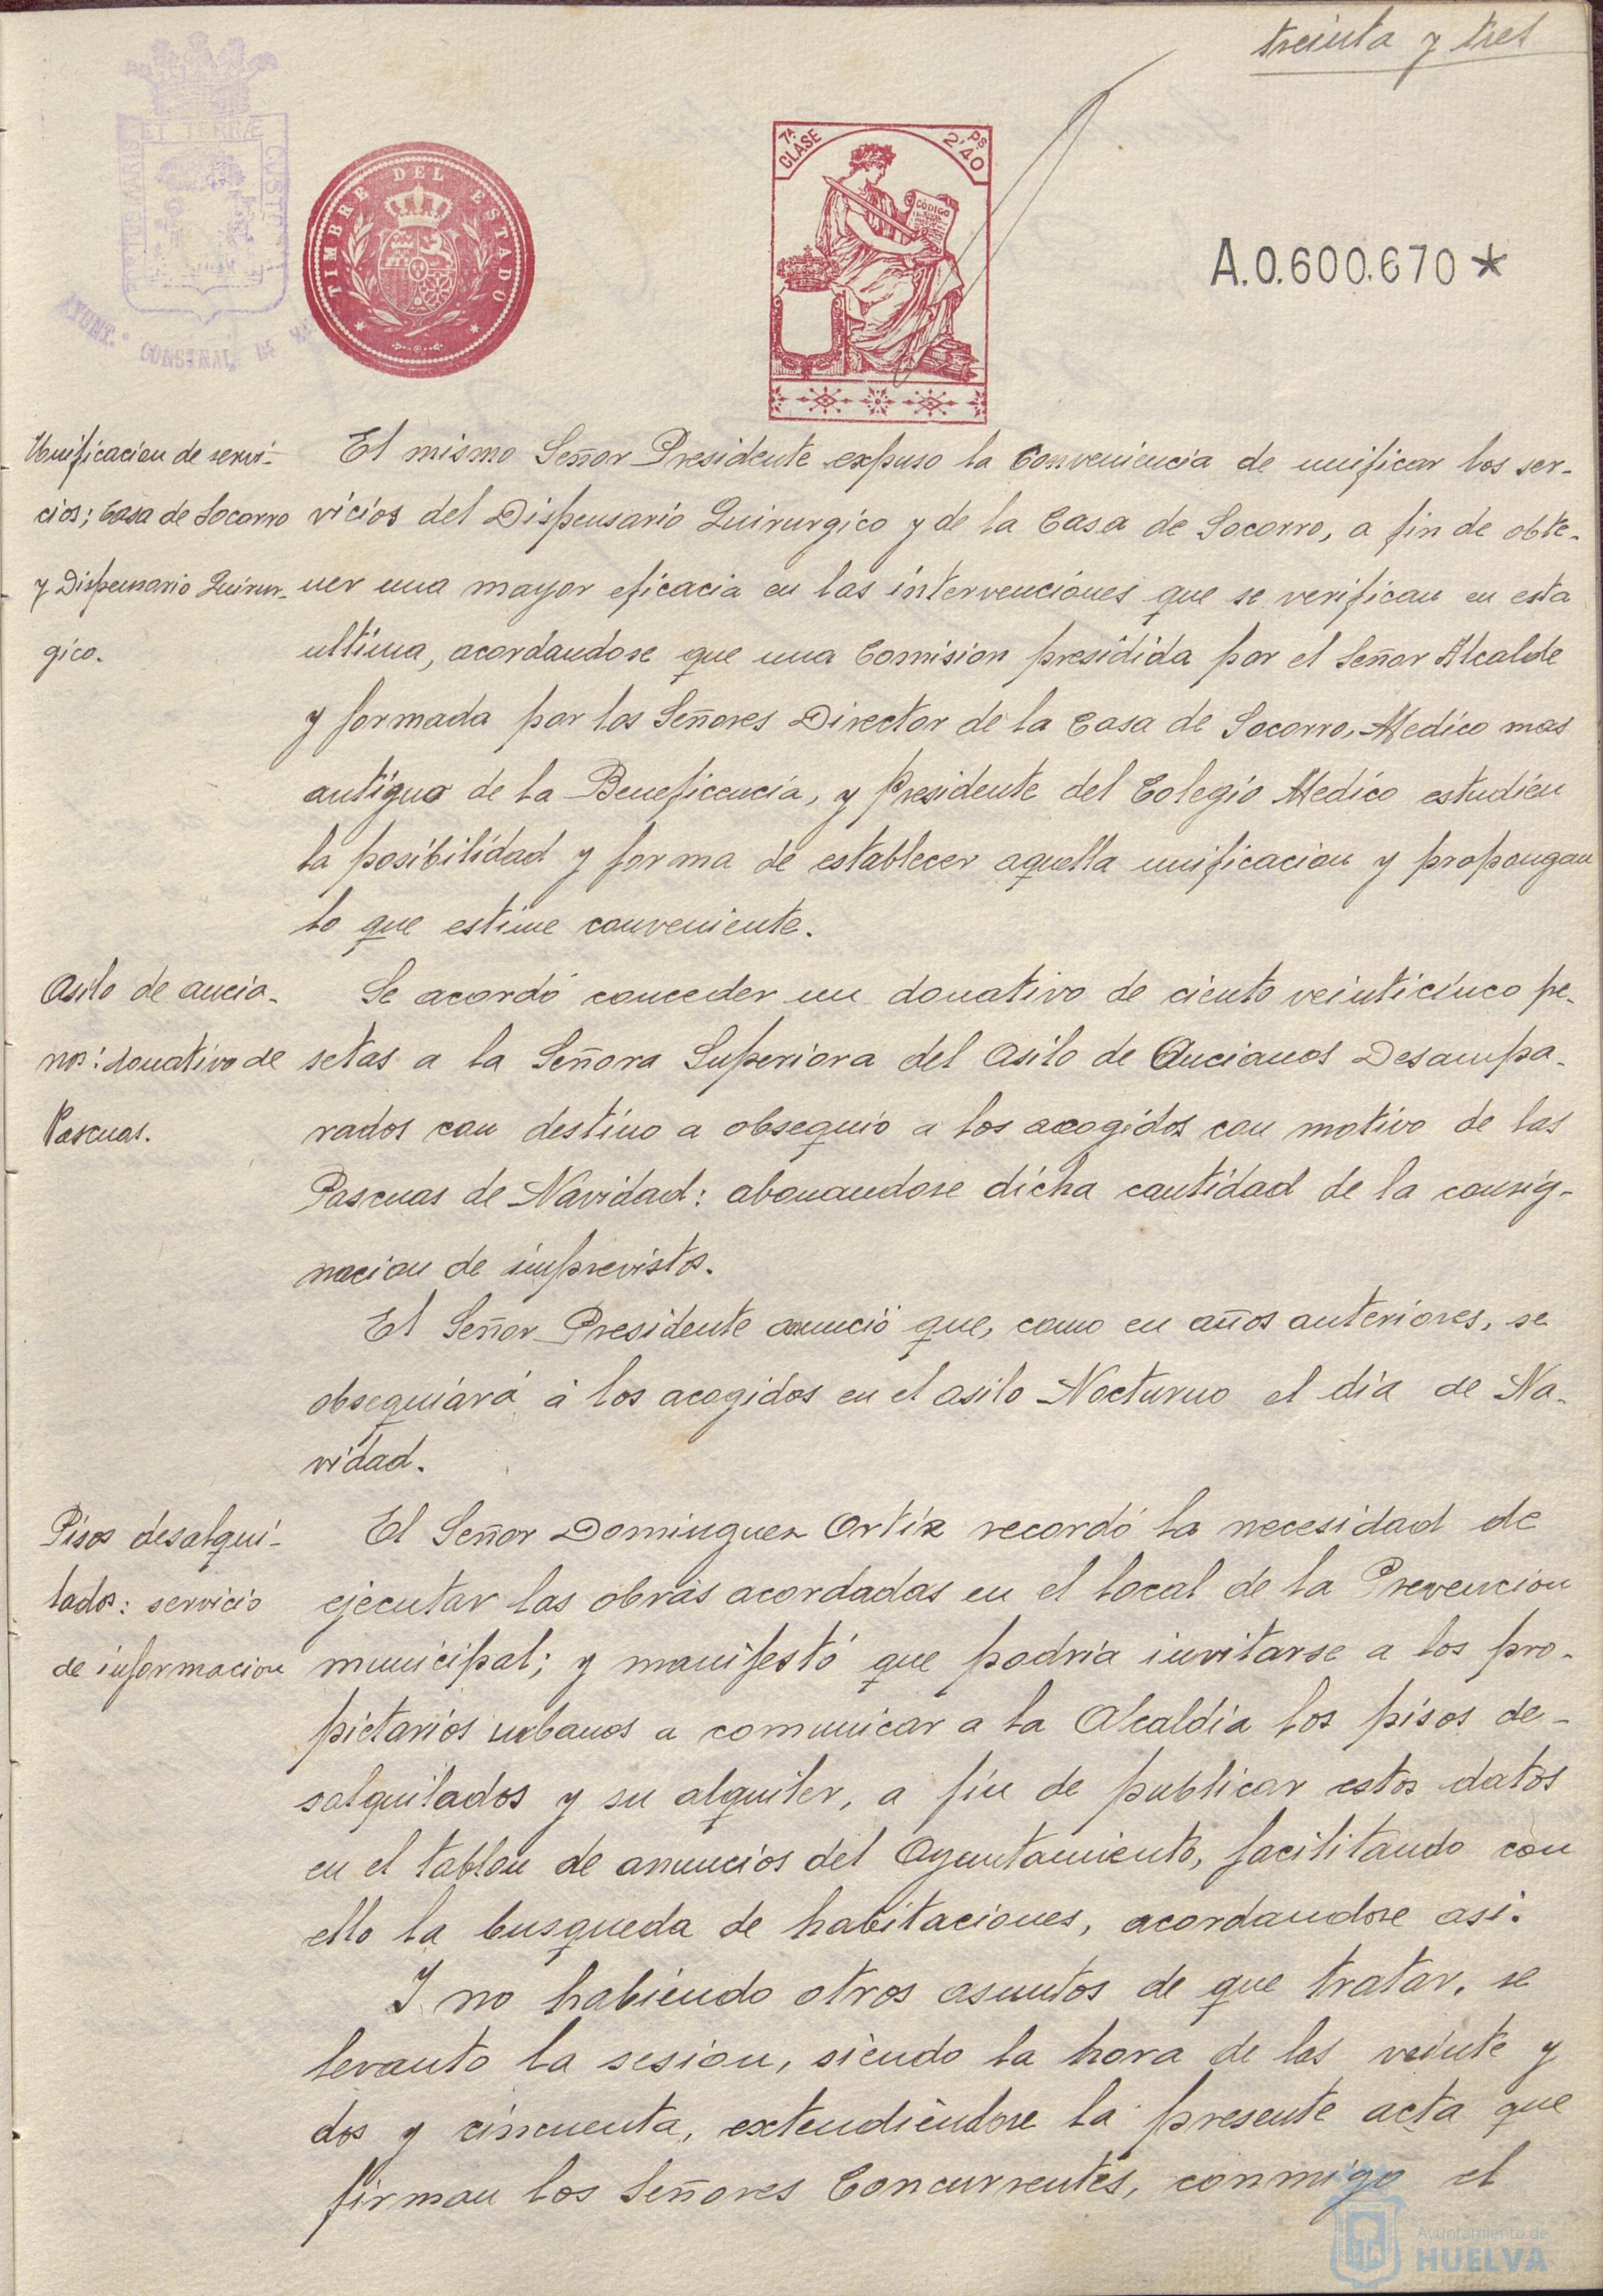 treinta y tres
PORTUS MARIS ET TERRÆ CUSTODIA
AYUNT.º CONSTNAL. DE
TIMBRE DEL ESTADO
7ª CLASE
2'40 Ps
CODIGO
A.0.600.670*
Unificacion de servi-
cios; Casa de Socorro
y Dispensario Quirur-
gico.
El mismo Señor Presidente expuso la Conveniencia de unificar los ser-
vicios del Dispensario Quirurgico y de la Casa de Socorro, a fin de obte-
ner una mayor eficacia en las intervenciones que se verifican en esta
ultima, acordandose que una Comision presidida por el Señor Alcalde
y formada por los Señores Director de la Casa de Socorro, Medico mas
antiguo de la Beneficencia, y Presidente del Colegio Medico estudien
la posibilidad y forma de establecer aquella unificacion y propongan
lo que estime conveniente.
Asilo de ancia-
nos: donativo de
Pascuas.
Se acordó conceder un donativo de ciento veinticinco pe-
setas a la Señora Superiora del Asilo de Ancianos Desampa-
rados con destino a obsequio a los acogidos con motivo de las
Pascuas de Navidad: abonandose dicha cantidad de la consig-
nacion de imprevistos.
El Señor Presidente anunció que, como en años anteriores, se
obsequiará á los acogidos en el asilo Nocturno el dia de Na-
vidad.
Pisos desalqui-
lados: servicio
de informacion
El Señor Dominguez Ortiz recordó la necesidad de
ejecutar las obras acordadas en el local de la Prevencion
municipal; y manifestó que podria invitarse a los pro-
pietarios urbanos a comunicar a la Alcaldia los pisos de-
salquilados y su alquiler, a fin de publicar estos datos
en el tablon de anuncios del Ayuntamiento, facilitando con
ello la busqueda de habitaciones, acordandose asi.
Y no habiendo otros asuntos de que tratar, se
levanto la sesion, siendo la hora de las veinte y
dos y cincuenta, extendiéndose la presente acta que
firman los Señores Concurrentes, conmigo el
Ayuntamiento de
HUELVA